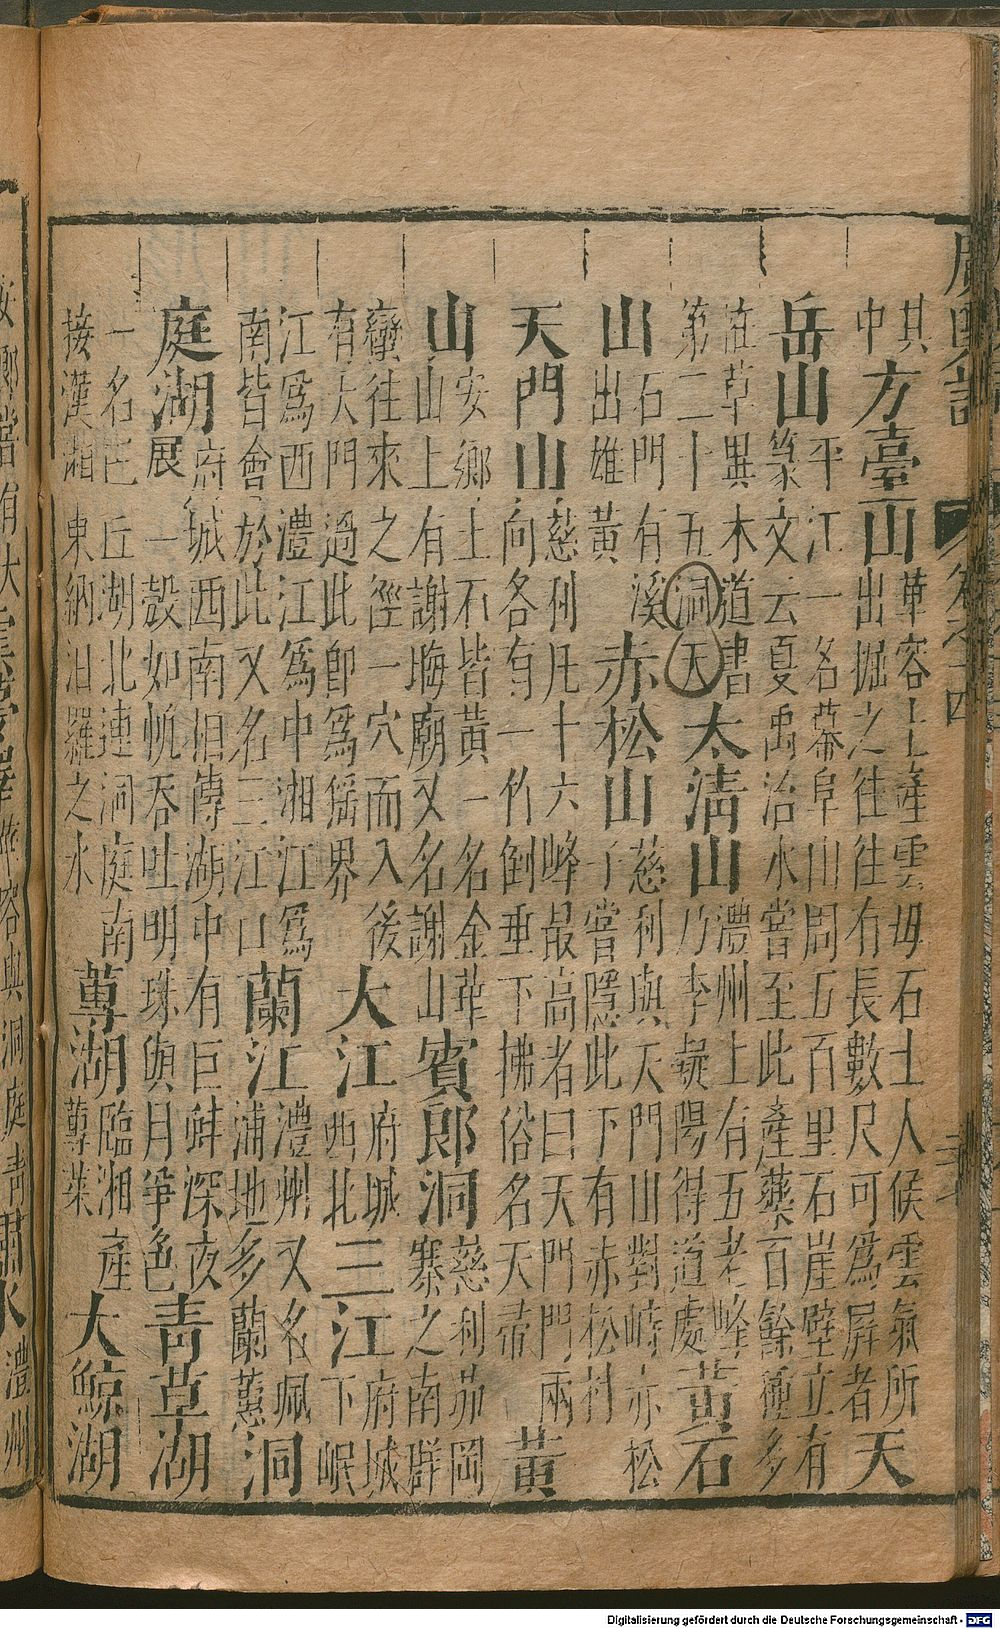 廣輿記 卷之十四
其
中
方臺山
華容上產雲母石土人候雲氣所
出掘之往往有長數尺可為屏者
天
岳山
平江一名幕阜山周五百里石崖壁立有
篆文云夏禹治水嘗至此產藥百餘種多
草異木道書
第二十五洞天
太清山
澧州上有五老峰
乃李疑陽得道處
黃石
山
石門有溪
出雄黃
赤松山
慈利與天門山對峙赤松
子嘗隱此下有赤松村
天門山
慈利凡十六峰最高者曰天門門兩
向各有一竹倒垂下拂俗名天帚
黃
山
安鄉土石皆黃一名金華
山上有謝晦廟又名謝山
賓郎洞
慈利茄岡
寨之南群
蠻往來之徑一穴而入後
有大門過此即為猺界
大江
府城
西北
三江
府城
下岷
江為西澧江為中湘江為
南皆會於此又名三江口
蘭江
澧州又名佩
浦地多蘭蕙
洞
庭湖
府城西南相傳湖中有巨蚌深夜
展一殼如帆吞吐明珠與月爭色
青草湖
一名芭丘湖北連洞庭南
接漢湘東納汨羅之水
蓴湖
臨湘產
蓴菜
大鯨湖
Digitalisierung gefördert durch die Deutsche Forschungsgemeinschaft - DFG